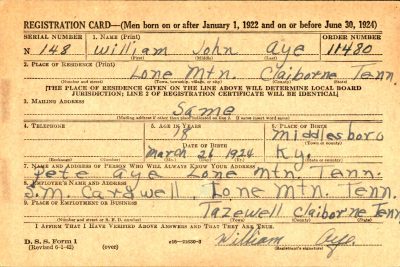 REGISTRATION CARD—(Men born on or after January 1, 1922 and on or before June 30, 1924)
SERIAL NUMBER 1. NAME (Print) ORDER NUMBER
N 148 William John Aye 11480
(First) (Middle) (Last)
2. PLACE OF RESIDENCE (Print)
Lone Mtn. Claiborne Tenn.
(Number and street) (Town, township, village, or city) (County) (State)
[THE PLACE OF RESIDENCE GIVEN ON THE LINE ABOVE WILL DETERMINE LOCAL BOARD
JURISDICTION; LINE 2 OF REGISTRATION CERTIFICATE WILL BE IDENTICAL]
3. MAILING ADDRESS
Same
[Mailing address if other than place indicated on line 2. If same insert word same]
4. TELEPHONE 5. AGE IN YEARS 6. PLACE OF BIRTH
18 Middlesboro
DATE OF BIRTH (Town or county)
March 26 1924 Ky.
(Exchange) (Number) (Mo.) (Day) (Yr.) (State or country)
7. NAME AND ADDRESS OF PERSON WHO WILL ALWAYS KNOW YOUR ADDRESS
Pete Aye Lone Mtn. Tenn.
8. EMPLOYER'S NAME AND ADDRESS
Lone Mtn. Tenn.
9. PLACE OF EMPLOYMENT OR BUSINESS
Tazewell Claiborne Tenn
(Number and street or R. F. D. number) (Town) (County) (State)
I AFFIRM THAT I HAVE VERIFIED ABOVE ANSWERS AND THAT THEY ARE TRUE.
D. S. S. Form 1
(Revised 6-1-42) (over) William Aye
(Registrant's signature)